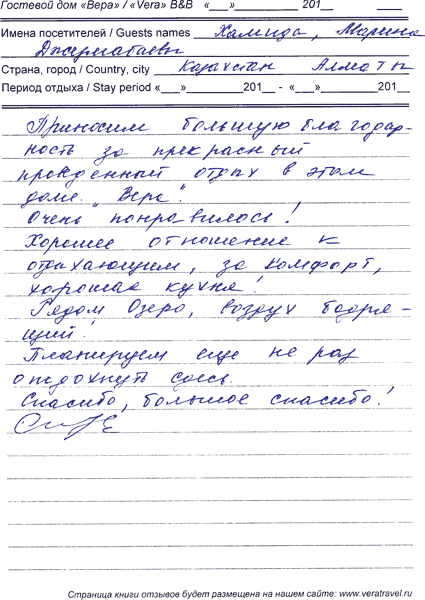 Гостевой дом «Вера» / «Vera» B&B «___»____________ 201__
Имена посетителей / Guests names Халида, Марина
Джермабаевы
Страна, город / Country, city Казахстан Алматы
Период отдыха / Stay period «___»__________201__ - «___»__________201__
Приносим большую благодар-
ность за прекрасный
проведенный отдых в этом
доме "Вера".
Очень понравилось!
Хорошее отношение к
отдыхающим, за комфорт,
хорошая кухня!
Рядом Озеро, воздух бодря-
щий!
Планируем еще не раз
отдохнуть здесь.
Спасибо, большое спасибо!
Страница книги отзывов будет размещена на нашем сайте: www.veratravel.ru